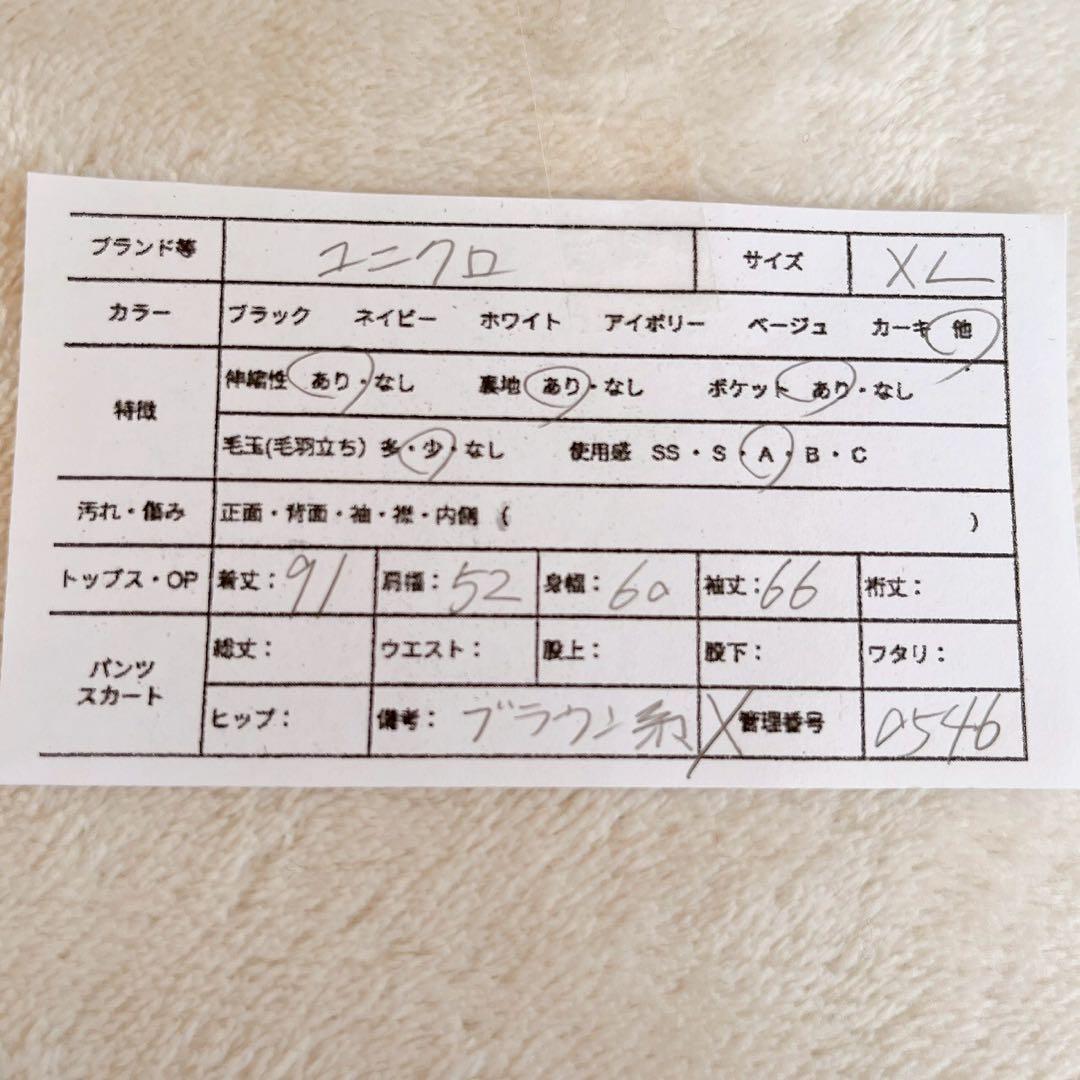 ブランド等 ユニクロ サイズ XL
カラー ブラック ネイビー ホワイト アイボリー ベージュ カーキ 他
特徴 伸縮性 あり・なし 裏地 あり・なし ポケット あり・なし
毛玉(毛羽立ち) 多・少・なし 使用感 SS・S・A・B・C
汚れ・傷み 正面・背面・袖・襟・内側 ( )
トップス・OP 着丈:91 肩幅:52 身幅:60 袖丈:66 裄丈:
パンツ スカート 総丈: ウエスト: 股上: 股下: ワタリ:
ヒップ: 備考: ブラウン系 管理番号 0546